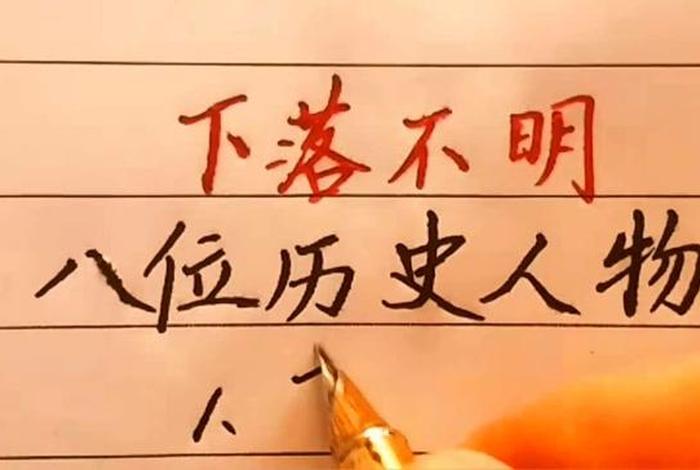 下落不明
八位历史人物